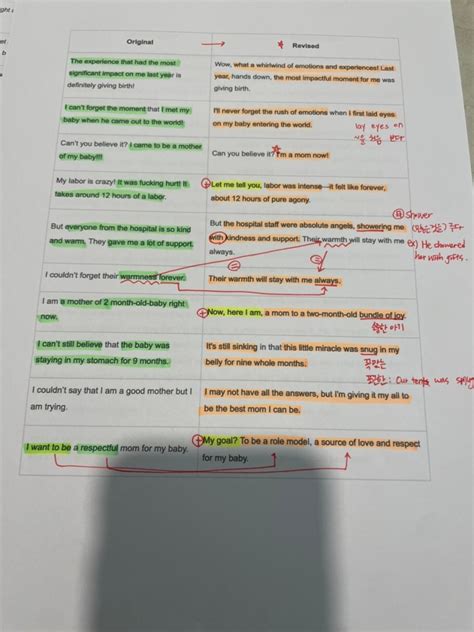 Original → ★ Revised
The experience that had the most
significant impact on me last year is
definitely giving birth!
Wow, what a whirlwind of emotions and experiences! Last
year, hands down, the most impactful moment for me was
giving birth.
I can't forget the moment that I met my
baby when he came out to the world!
I'll never forget the rush of emotions when I first laid eyes
on my baby entering the world.
lay eyes on
Can't you believe it? I came to be a mother
of my baby!!!
Can you believe it? I'm a mom now!
My labor is crazy! It was fucking hurt! It
takes around 12 hours of a labor.
Let me tell you, labor was intense—it felt like forever,
about 12 hours of pure agony.
But everyone from the hospital is so kind
and warm. They gave me a lot of support.
But the hospital staff were absolute angels, showering me
with kindness and support. Their warmth will stay with me
always.
shower
ex) He showered
her with gifts.
I couldn't forget their warmness forever.
Their warmth will stay with me always.
I am a mother of 2 month-old-baby right
now.
Now, here I am, a mom to a two-month-old bundle of joy.
I can't still believe that the baby was
staying in my stomach for 9 months.
It's still sinking in that this little miracle was snug in my
belly for nine whole months.
Our tent was
I couldn't say that I am a good mother but I
am trying.
I may not have all the answers, but I'm giving it my all to
be the best mom I can be.
I want to be a respectful mom for my baby.
My goal? To be a role model, a source of love and respect
for my baby.